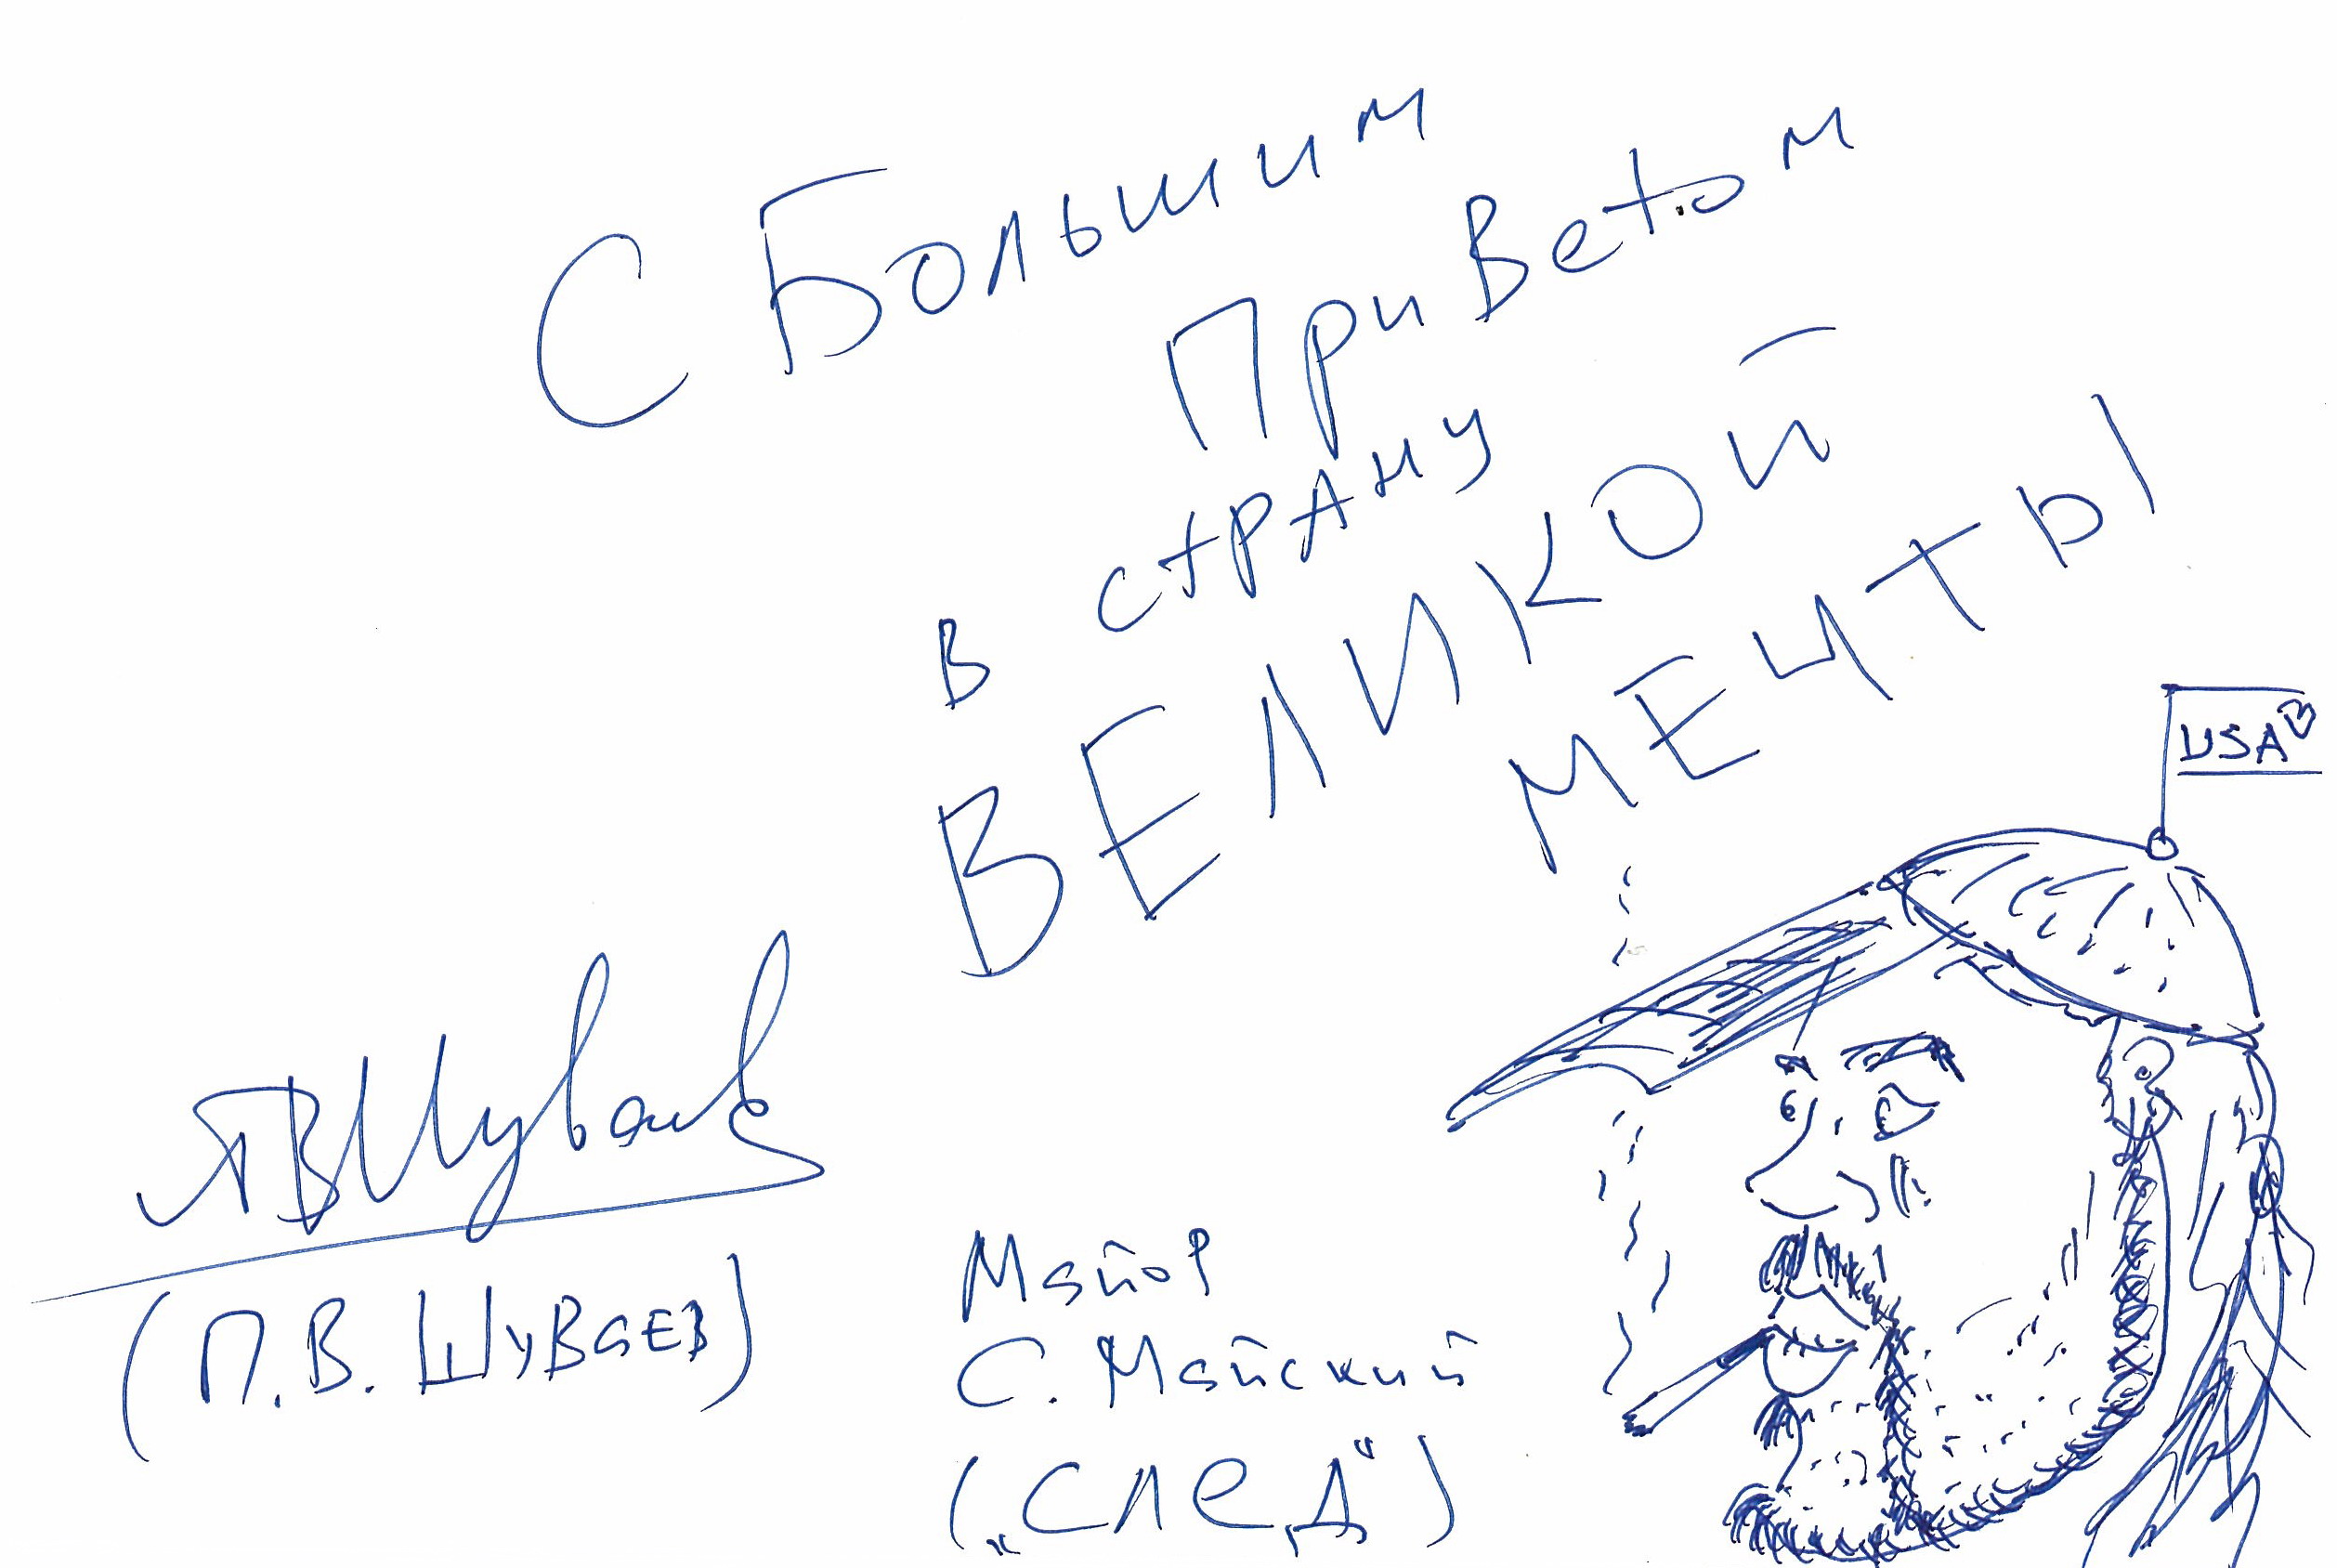 С Большим
Приветом
в страну
ВЕЛИКОЙ
МЕЧТЫ
USA
ПВШуваев
(П.В. ШУВаЕВ)
Майор
С. Майский
(„СЛЕД“)